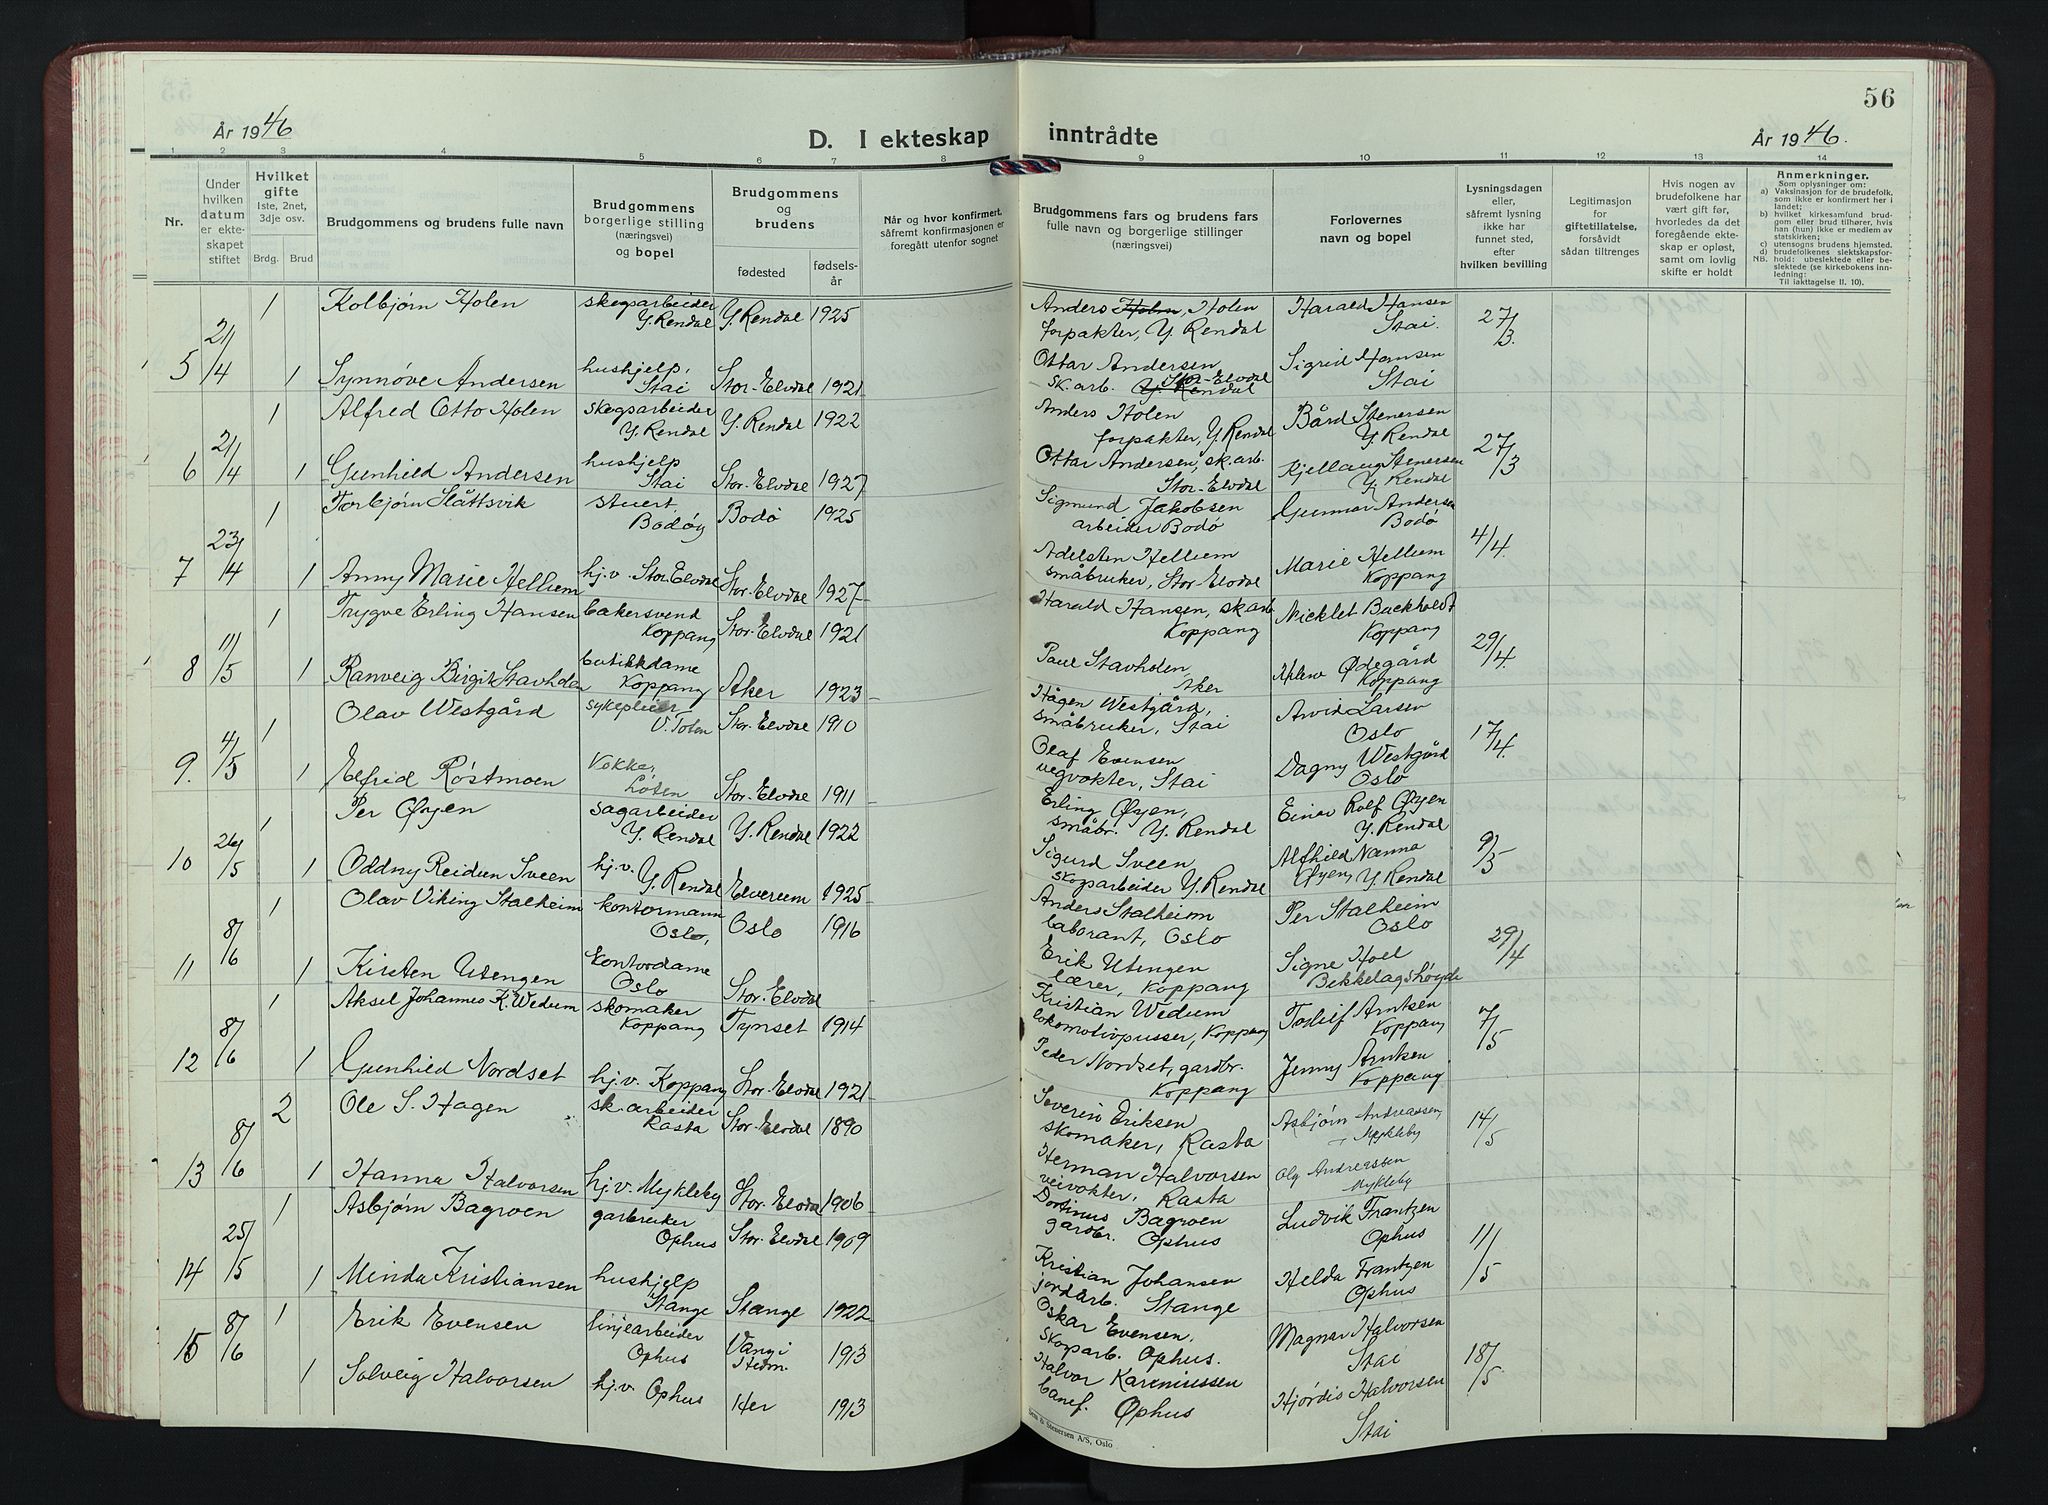 56
År 1946
D. I ekteskap inntrådte
År 1946.
1 2 3 4 5 6 7 8 9 10 11 12 13 14
Nr.
Under hvilken datum er ekteskapet stiftet
Hvilket gifte 1ste, 2net, 3dje osv.
Brdg. Brud
Brudgommens og brudens fulle navn
Brudgommens borgerlige stilling (næringsvei) og bopel
Brudgommens og brudens
fødested
fødselsår
Når og hvor konfirmert, såfremt konfirmasjonen er foregått utenfor sognet
Brudgommens fars og brudens fars fulle navn og borgerlige stillinger (næringsvei)
Forlovernes navn og bopel
Lysningsdagen eller, såfremt lysning ikke har funnet sted, efter hvilken bevilling
Legitimasjon for giftetillatelse, forsåvidt sådan tiltrenges
Hvis nogen av brudefolkene har vært gift før, hvorledes da det foregående ekteskap er opløst, samt om lovlig skifte er holdt
Anmerkninger.
Som oplysninger om:
a) Vaksinasjon for de brudefolk, som ikke er konfirmert her i landet;
b) hvilket kirkesamfund brudgom eller brud tilhører, hvis han (hun) ikke er medlem av statskirken;
c) utensogns brudens hjemsted.
d) brudefolkenes slektskapsforhold: ubeslektede eller beslektede (se kirkebokens innledning;
NB. Til iakttagelse II. 10).
1 Kolbjørn Holen skogsarbeider Y. Rendal Y. Rendal 1925 Anders Holen, Holen forpakter, Y. Rendal Harald Hansen Stai. 27/3.
5 21/4 1 Synnøve Andersen hushjelp, Stai Stor-Elvdal 1921 Ottar Andersen sk.arb. Y. Rendal Stor-Elvdal Sigrid Hansen Stai
1 Alfred Otto Holen skogsarbeider Y. Rendal Y. Rendal 1922 Anders Holen forpakter, Y. Rendal Bård Stenersen Y. Rendal 27/3
6 21/4 1 Gunhild Andersen hushjelp Stai Stor-Elvdal 1927 Ottar Andersen, sk.arb. Stor-Elvdal Kjellaug Stenersen Y. Rendal
1 Torbjørn Slåttsvik stuert, Bodø Bodø 1925 Sigmund Jakobsen arbeider Bodø Gunnar Andersen Bodø 4/4.
7 23/4 1 Anny Marie Hellum hj.v. Stor.Elvdal Stor.Elvdal 1927 Adelsten Hellum småbruker, Stor-Elvdal Marie Hellum Koppang
1 Trygve Erling Hansen bakersvend Koppang Stor-Elvdal 1921 Harald Hansen, sk.arb Koppang Nicklet Backholdt Koppang 29/4.
8 11/5 1 Ranveig Birgit Stavhden butikkdame Koppang Aker 1923 Paul Stavhden, Aker Ødegård Koppang
1 Olav Westgård sykepleier V. Toten Stor-Elvdal 1910 Hågen Westgård, småbruker, Stai Arvid Larsen Oslo 17/4.
9. 4/5 1 Elfrid Røstmoen Kokke, Løten Stor-Elvdal 1911 Olaf Evensen vegvokter, Stai Dagny Westgård Oslo
1 Per Øyen sagarbeider Y. Rendal Y. Rendal 1922 Erling Øyen, småbr. Y. Rendal Einar Rolf Øyen Y. Rendal 9/5
10 26/5 1 Oddny Reidun Sveen hj.v. Y. Rendal Elverum 1925 Sigurd Sveen skogarbeider Y. Rendal Alfhild Nanna Øyen, Y. Rendal
1 Olav Viking Stalheim kontormann Oslo, Oslo 1916 Anders Stalheim laborant, Oslo Per Stalheim Oslo 29/4
11 8/6 1 Kirsten Utengen kontordame Oslo Stor-Elvdal Erik Utengen lærer, Koppang Signe Hoel Bekkelagshøyda
1 Aksel Johannes K. Wedum skomaker Koppang Tynset 1914 Kristian Wedum lokomotivpusser, Koppang Todleif Arntsen Koppang 7/5
12 8/6 1 Gunhild Nordset hj.v. Koppang Stor-Elvdal 1921 Peder Nordset, gardbr. Koppang Jenny Arntsen Koppang
2 Ole S. Hagen sk.arbeider Rasta Stor-Elvdal 1890 Severin Eriksen skomaker, Rasta Asbjørn Andreassen, Mykleby 14/5
13 8/6 1 Hanna Halvorsen hj.v. Mykleby Stor-Elvdal 1906 Herman Halvorsen veivokter, Rasta Olg Andreassen Mykleby
1 Asbjørn Bagroen garbruker Ophus Stor-Elvdal 1909 Dortinus Bagroen gardbr. Ophus Ludvik Frantzen Ophus 11/5
14 25/5 1 Minda Kristiansen hushjelp Stange Stange 1922 Kristian Johansen jordarb. Stange Helda Frantzen Ophus
1 Erik Evensen linjearbeider Ophus Vang i Hedm. 1913 Oskar Evensen, skogarb. Ophus. Magnar Halvorsen Stai 18/5
15 8/6 1 Solveig Halvorsen hj.v. Ophus Her 1913 Halvor Karenussen banef. Ophus Hjördis Halvorsen Stai
& Stenersen A/S, Oslo